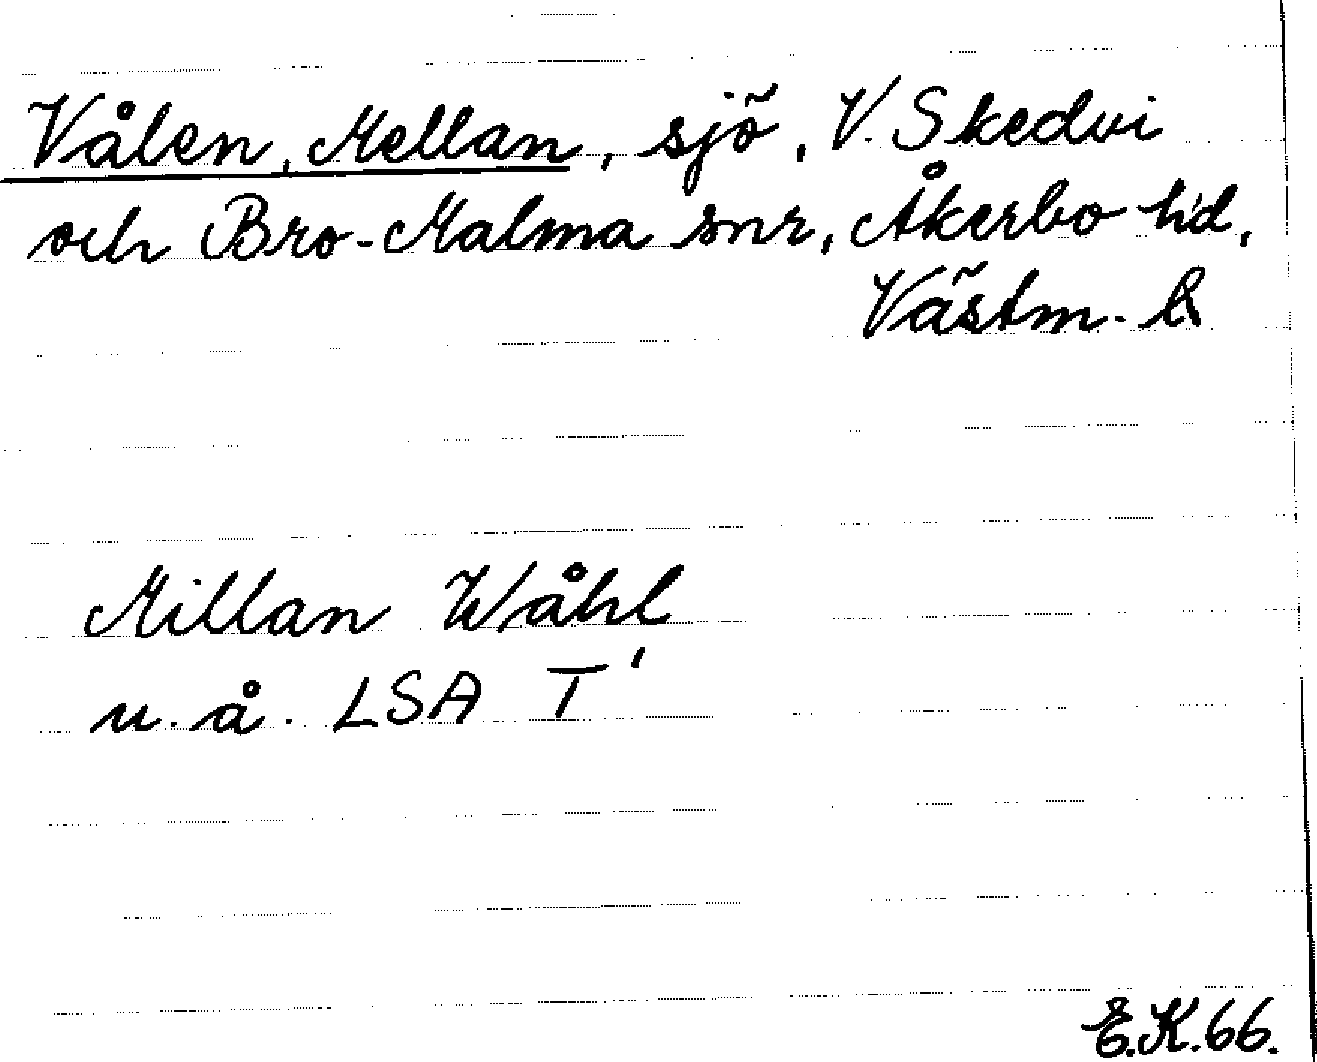 Vålen, Mellan, sjö, V. Skedvi
och Bro-Malma snr, Åkerbo hd,
Västm. l.
Millan Wåhl
u. å. LSA T'
E.K.66.